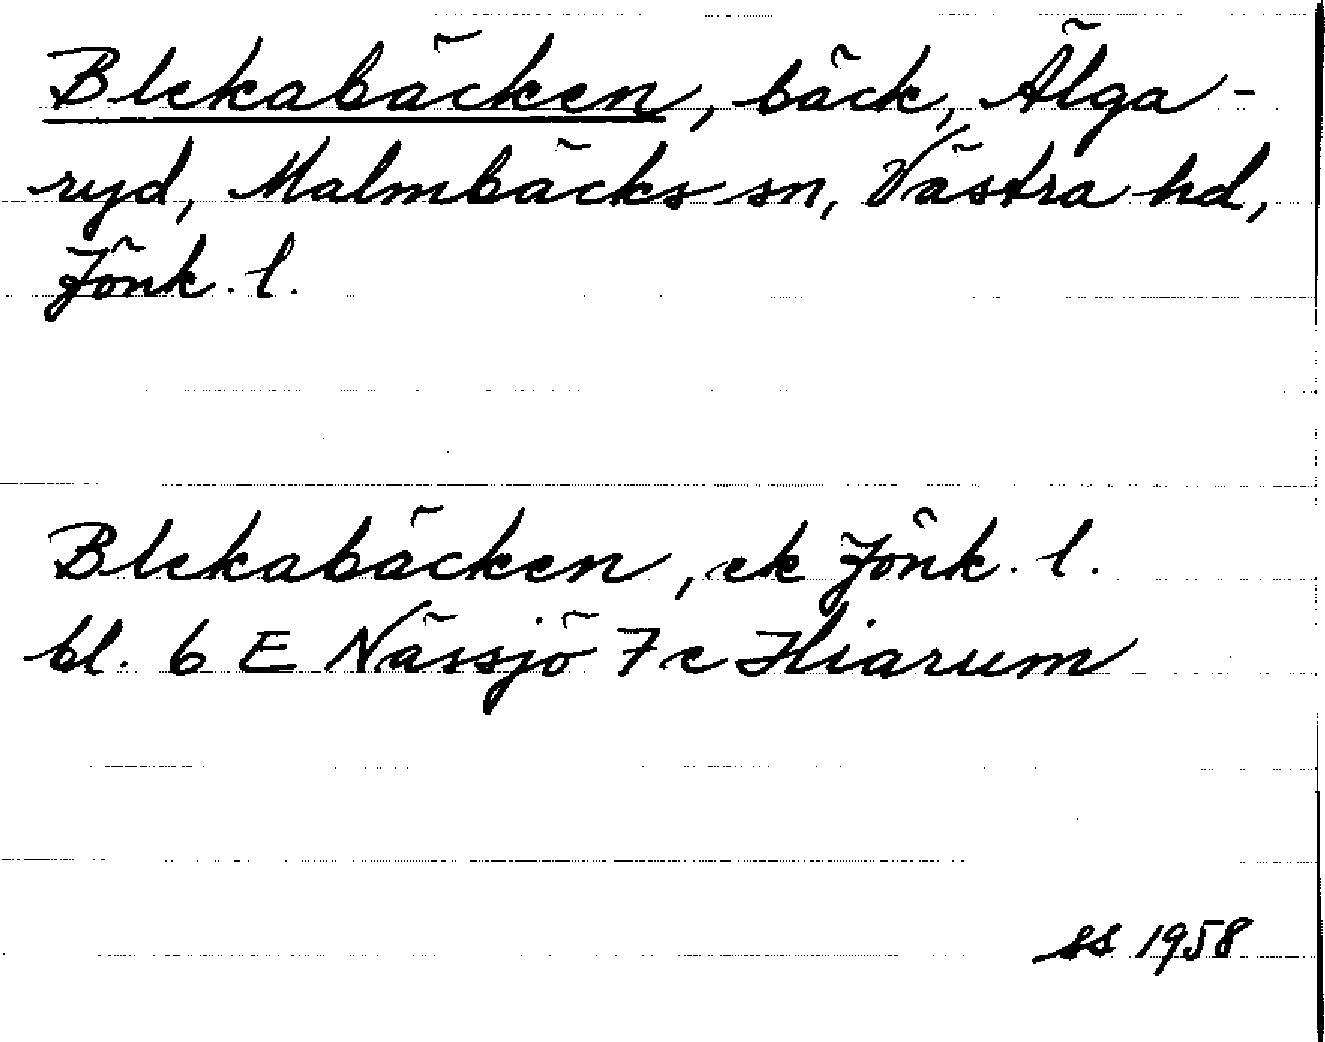 Blekabäcken, bäck, Älga-
ryd, Malmbäcks sn, Västra hd,
Jönk. l.
Blekabäcken, ek Jönk. l.
bl. 6 E Nässjö 7 c Hiarum
SS 1958